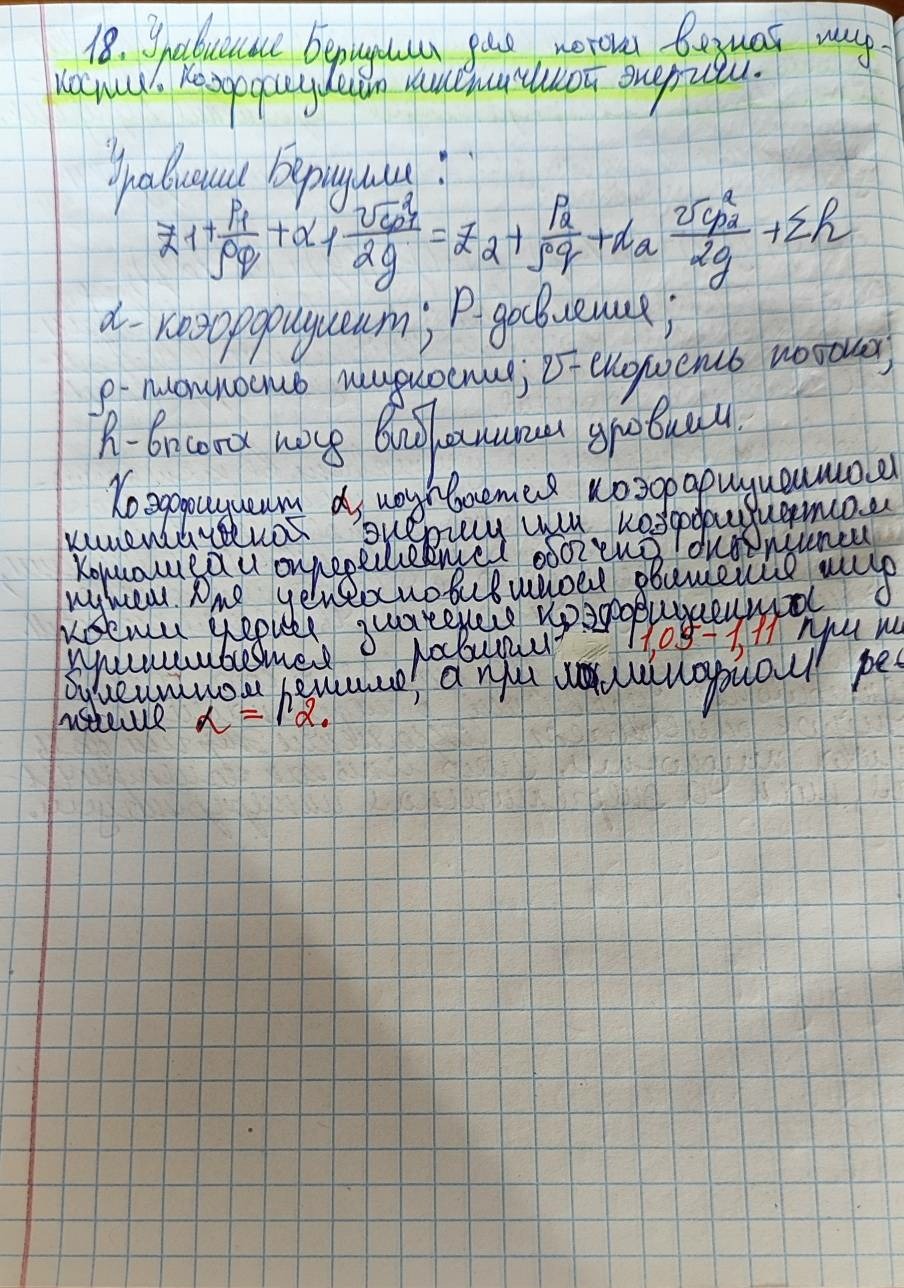 18. Уравнение Бернулли для потока вязкой жид-
кости. Коэффициент кинетической энергии.
Уравнение Бернулли:
z1 + P1/ρg + α1 υср1²/2g = z2 + P2/ρg + α2 υср2²/2g + Σh
α - коэффициент; P - давление;
ρ - плотность жидкости; υ - скорость потока;
h - высота над выбранным уровнем.
Коэффициент α, называется коэффициентом
кинетической энергии или коэффициентом
Кориолиса и определяется обычно опытным
путем. Для установившегося движения жид
кости средние значения коэффициента
принимается равным 1,05-1,11 при
булентном режиме, а при ламинарном ре
жиме α = 2.